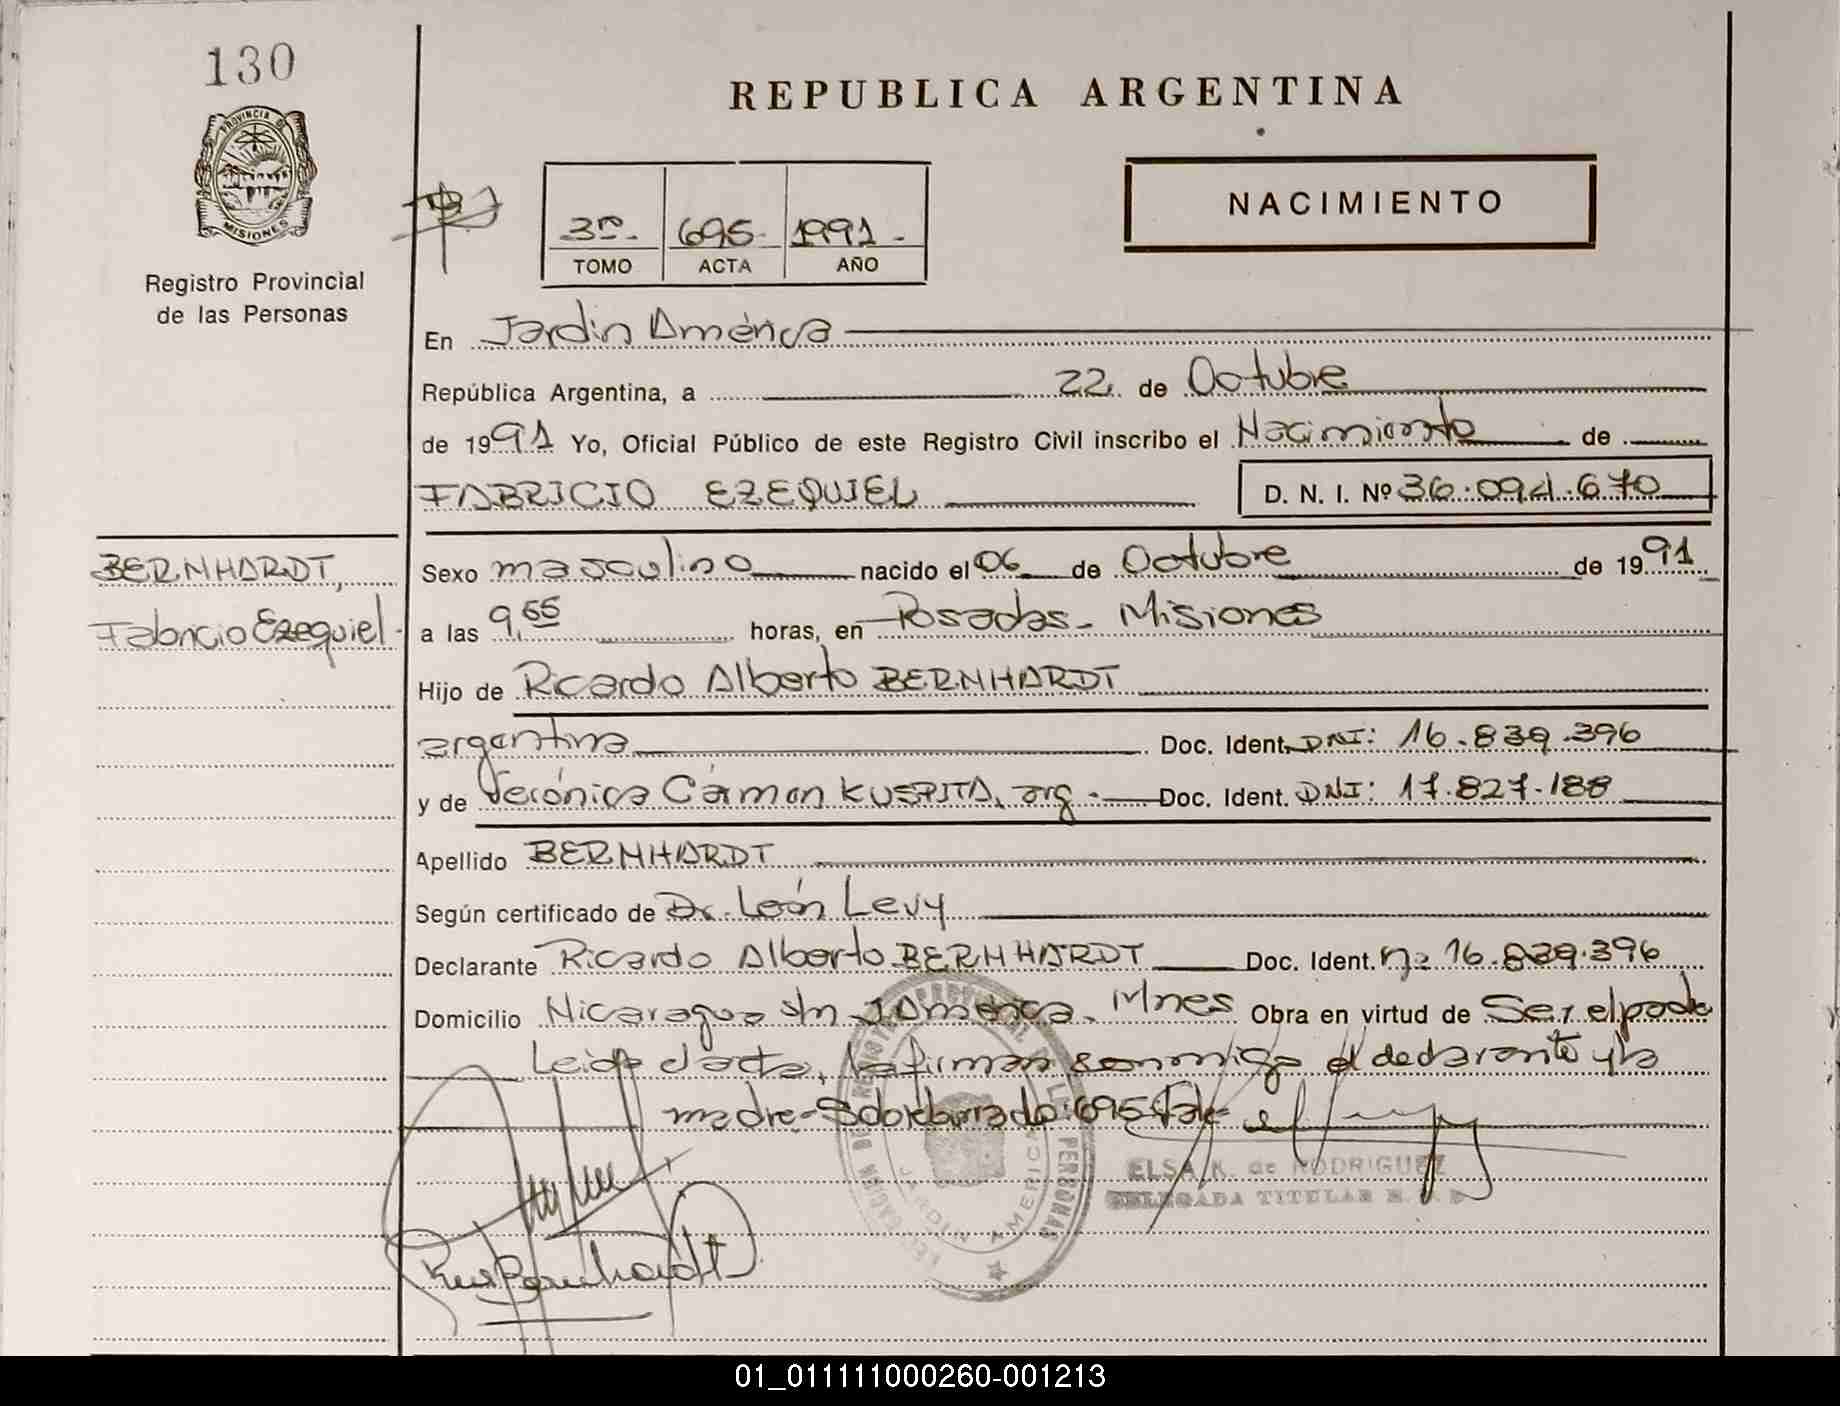 130
REPUBLICA ARGENTINA
PROVINCIA DE
MISIONES
Registro Provincial
de las Personas
3º- 695- 1991-
TOMO ACTA AÑO
NACIMIENTO
En Jardin América
República Argentina, a 22 de Octubre
de 1991 Yo, Oficial Público de este Registro Civil inscribo el Nacimiento de
FABRICIO EZEQUIEL D. N. I. Nº 36.094.670
BERNHARDT,
Fabricio Ezequiel-
Sexo masculino nacido el 06 de Octubre de 1991
a las 9,55 horas, en Posadas- Misiones
Hijo de Ricardo Alberto BERNHARDT
argentina Doc. Ident. DNI: 16.839.396
y de Verónica Cármen KUSPITA, arg.- Doc. Ident. DNI: 17.827.188
Apellido BERNHARDT
Según certificado de Dr. León Levy
Declarante Ricardo Alberto BERNHARDT Doc. Ident. nº 16.839.396
Domicilio Nicaragua s/n J América. Mnes Obra en virtud de Ser el padre
Leida el acta, la firman conmigo el declarante y la
madre-Sobreborrado:695 Vale-
ELSA K. de RODRIGUEZ
DELEGADA TITULAR
JARDIN AMERICA
Bernhardt
01_011111000260-001213